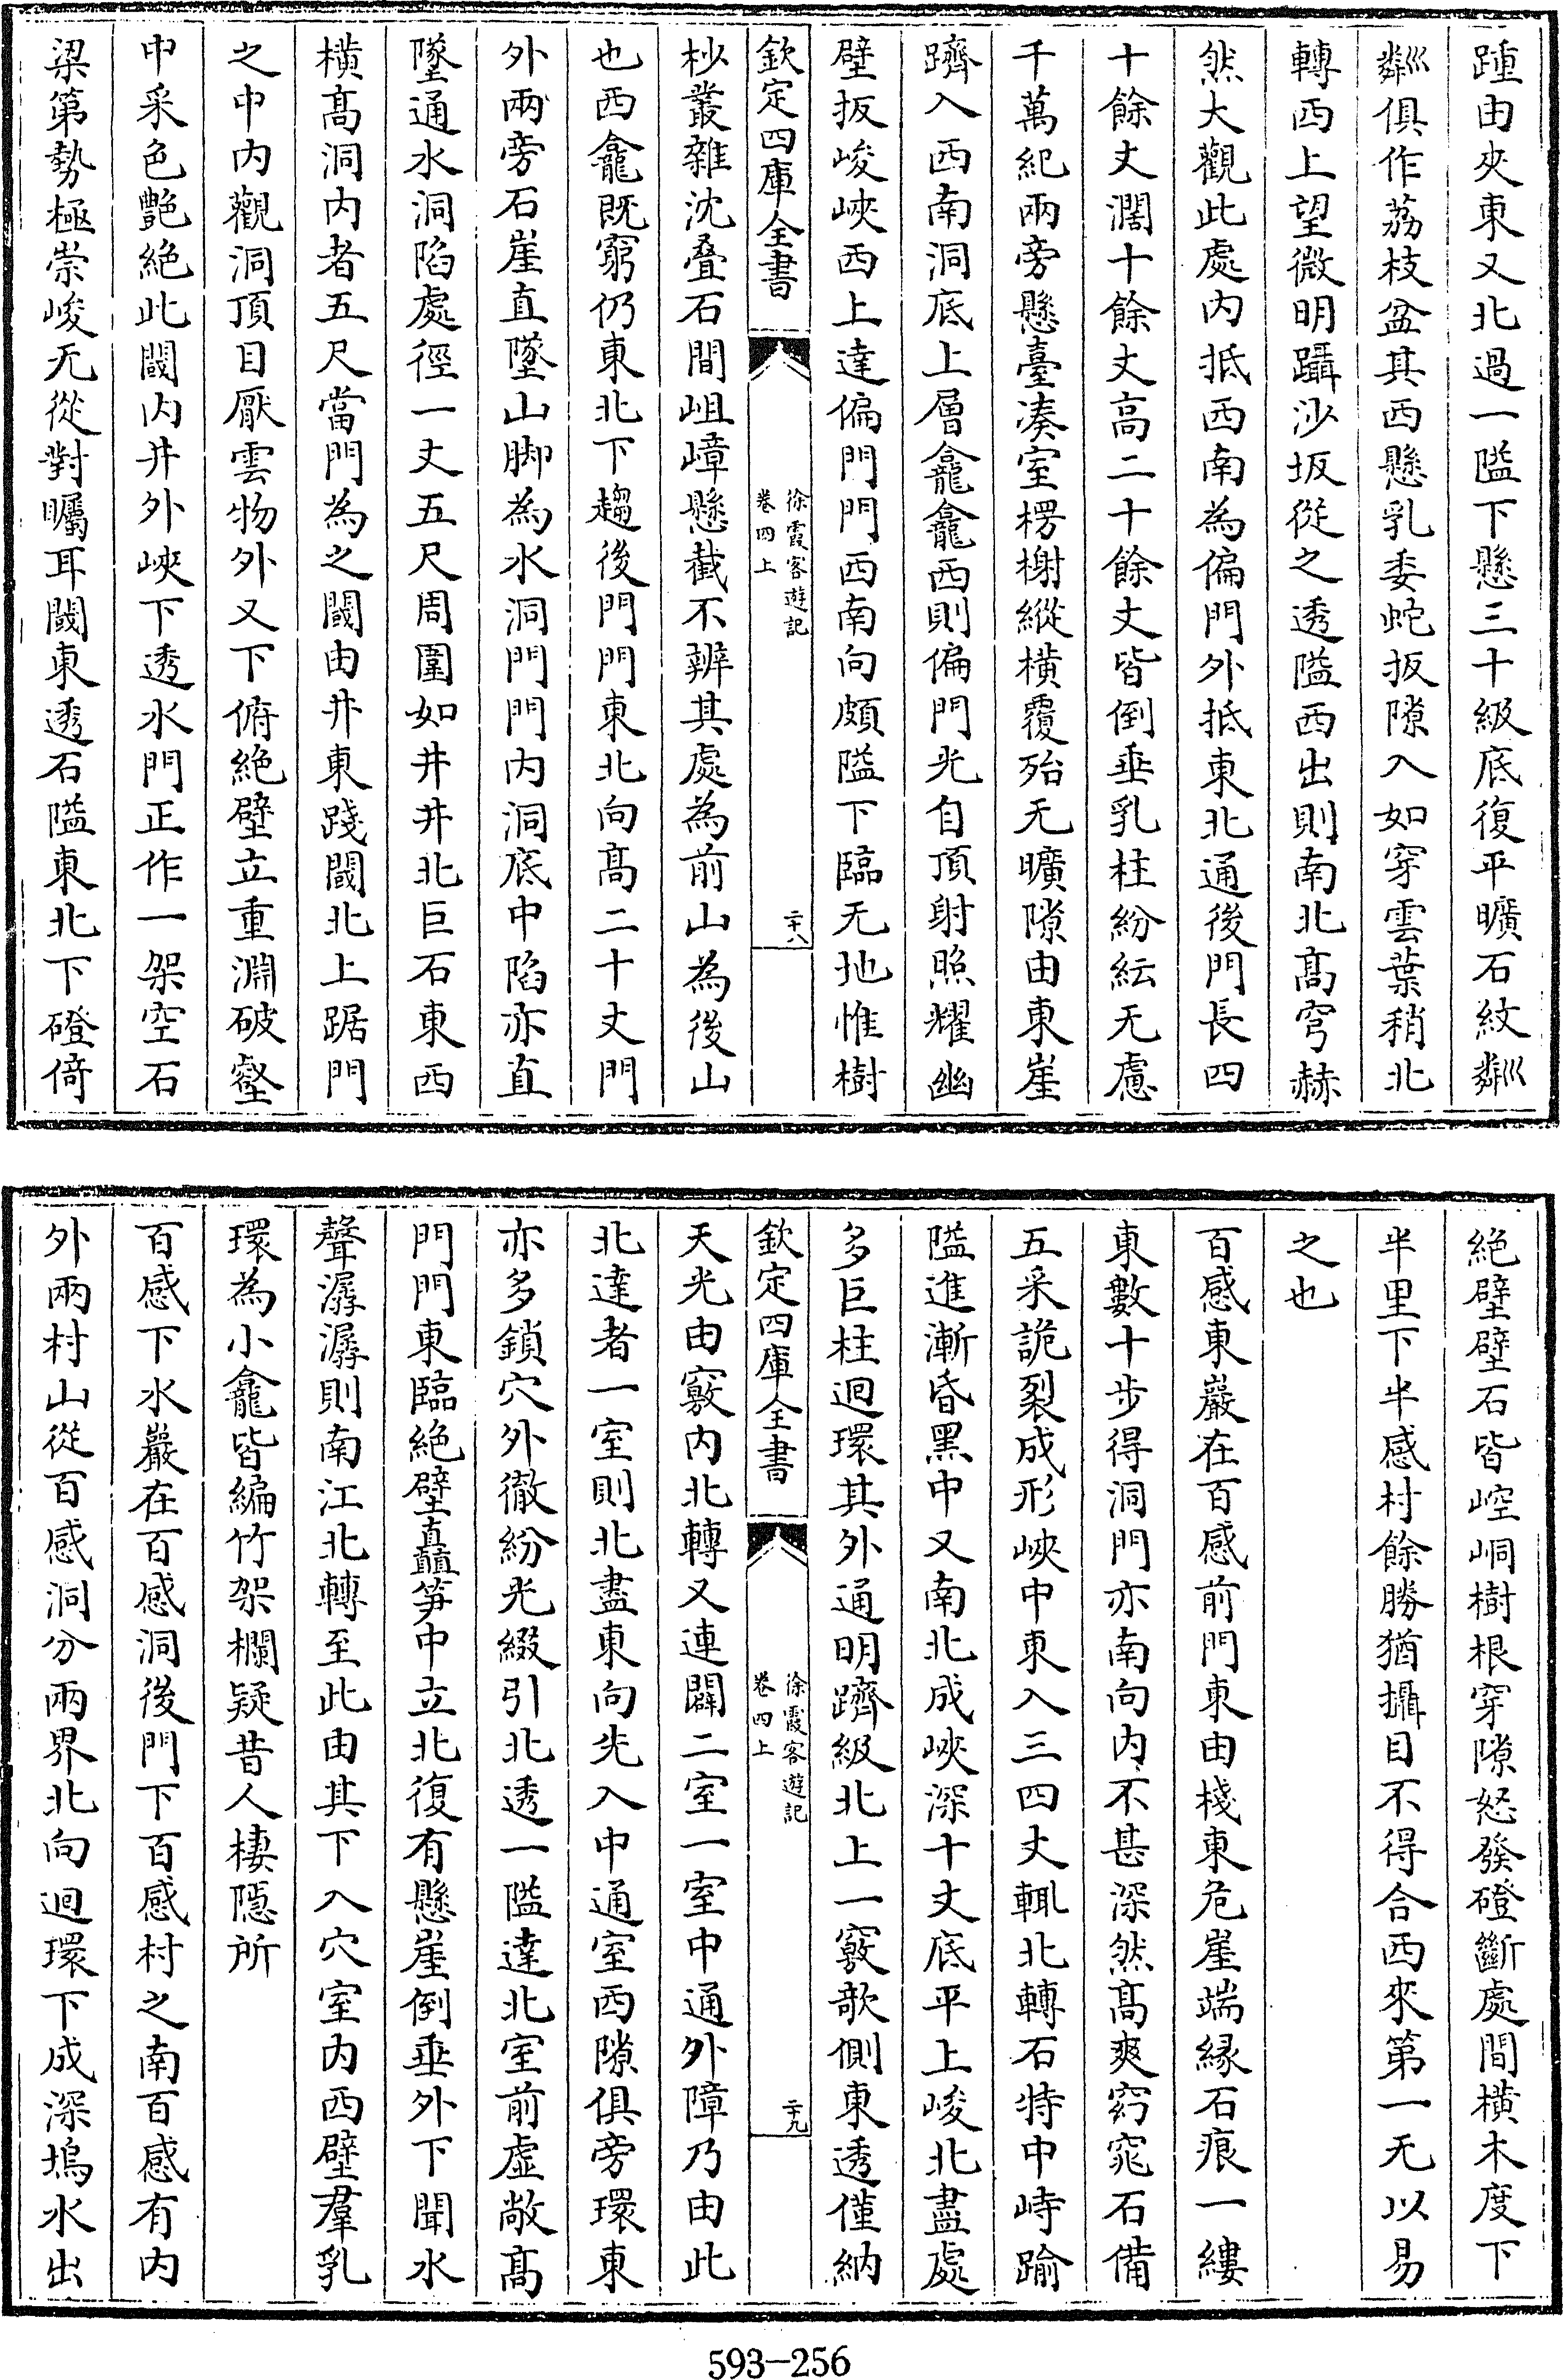 踵由夾東又北過一隘下懸三十級底復平曠石紋粼
粼俱作荔枝盆其西懸乳委蛇扳隙入如穿雲葉稍北
轉西上望微明躡沙坂從之透隘西出則南北髙穹赫
然大觀此處内抵西南為偏門外抵東北通後門長四
十餘丈濶十餘丈高二十餘丈皆倒垂乳柱紛紜无慮
千萬紀兩旁懸臺湊室楞榭縱横覆殆无曠隙由東崖
躋入西南洞底上層龕龕西則偏門光自頂射照耀幽
壁扳峻峽西上達偏門門西南向頗隘下臨无地惟樹
欽定四庫全書
徐霞客遊記
卷四上
二十八
杪叢雜沈叠石間岨嶂懸截不辨其處為前山為後山
也西龕既窮仍東北下趨後門門東北向髙二十丈門
外兩旁石崖直墜山脚為水洞門門内洞底中陷亦直
墜通水洞陷處徑一丈五尺周圍如井井北巨石東西
横高洞内者五尺當門為之閾由井東踐閾北上踞門
之中内觀洞頂目厭雲物外又下俯絶壁立重淵破壑
中采色艶絶此閾内井外峽下透水門正作一架空石
梁第勢極崇峻无從對矚耳閾東透石隘東北下磴倚
絶壁壁石皆崆峒樹根穿隙怒發磴斷處間横木度下
半里下半感村餘勝猶攝目不得合西來第一无以易
之也
百感東巖在百感前門東由棧東危崖端縁石痕一縷
東數十步得洞門亦南向内不甚深然髙爽窈窕石備
五采詭裂成形峽中東入三四丈輒北轉石特中峙踰
隘進漸昏黑中又南北成峽深十丈底平上峻北盡處
多巨柱迴環其外通明躋級北上一竅欹側東透僅納
欽定四庫全書
徐霞客遊記
卷四上
二十九
天光由竅内北轉又連闢二室一室中通外障乃由此
北達者一室則北盡東向先入中通室西隙俱旁環東
亦多鎖穴外徹紛光綴引北透一隘達北室前虚敞髙
門門東臨絶壁矗笋中立北復有懸崖倒垂外下聞水
聲潺潺則南江北轉至此由其下入穴室内西壁羣乳
環為小龕皆編竹架欄疑昔人棲隱所
百感下水巖在百感洞後門下百感村之南百感有内
外兩村山從百感洞分兩界北向迴環下成深塢水出
593-256